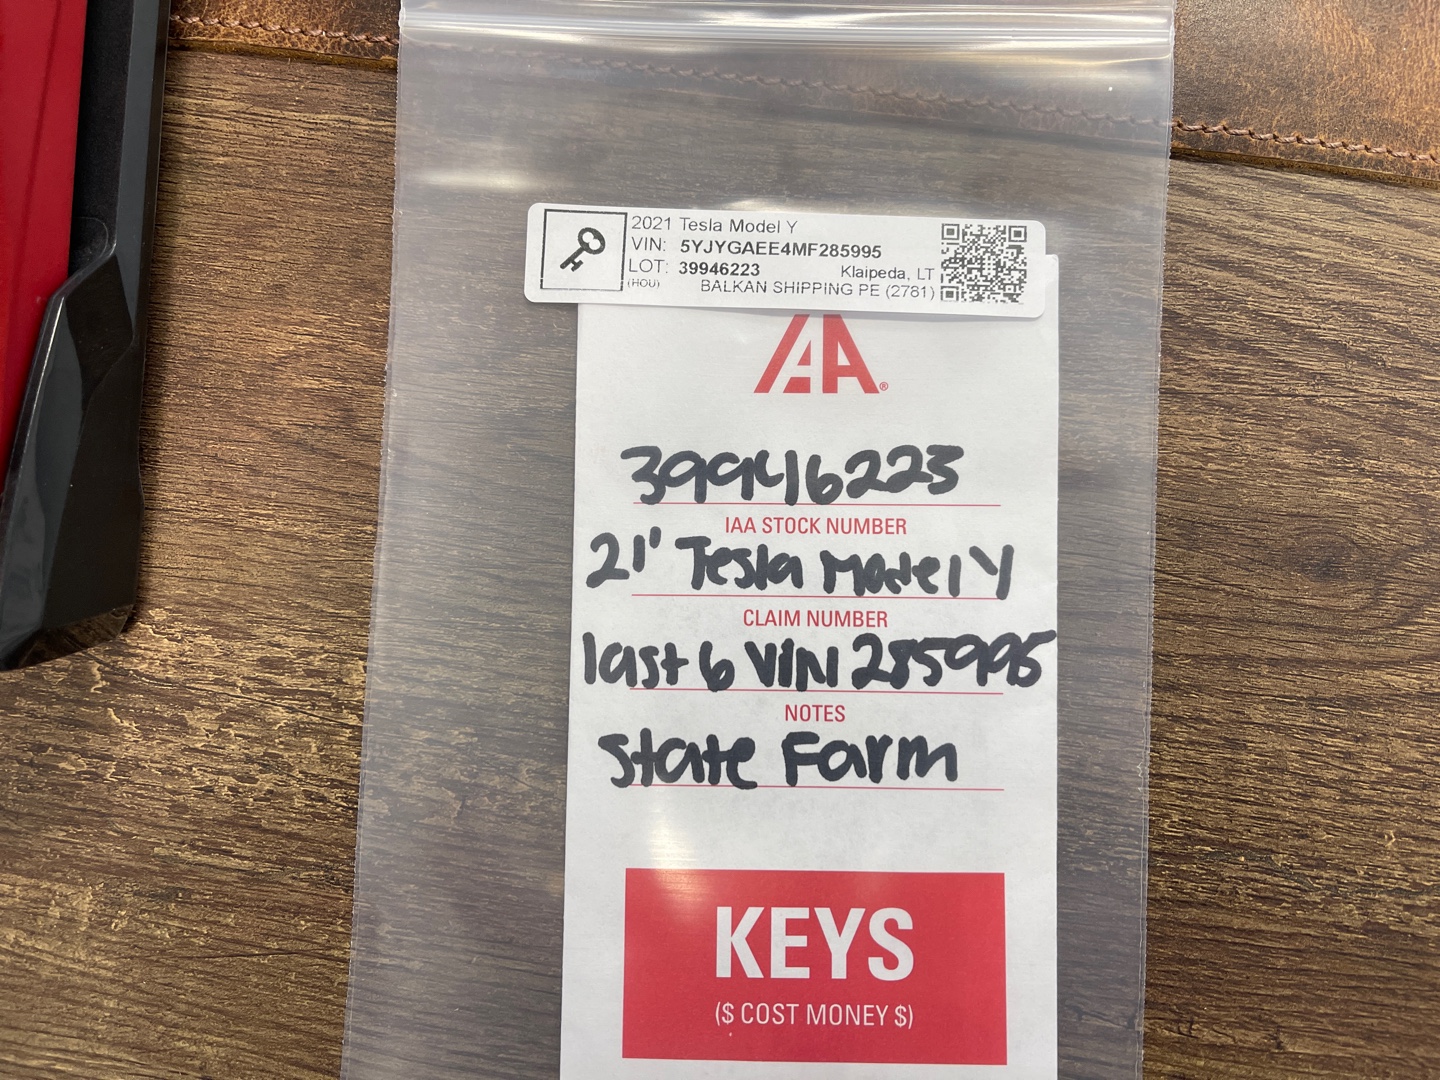 2021 Tesla Model Y
VIN: 5YJYGAEE4MF285995
LOT: 39946223 Klaipeda, LT
(HOU) BALKAN SHIPPING PE (2781)
IAA®
39946223
IAA STOCK NUMBER
21' Tesla Model Y
CLAIM NUMBER
last 6 VIN 285995
NOTES
State Farm
KEYS
($ COST MONEY $)